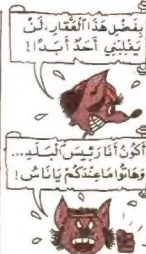 بِفَضْلِ هَذَا الْعَقَّارِ، لَنْ
يَغْلِبَنِي أَحَدٌ أَبَدًا!
أَكُونُ أَنَا رَئِيسَ الْبَلَدِ...
وَهَاتُوا مَا عِنْدَكُمْ يَا نَاسُ!